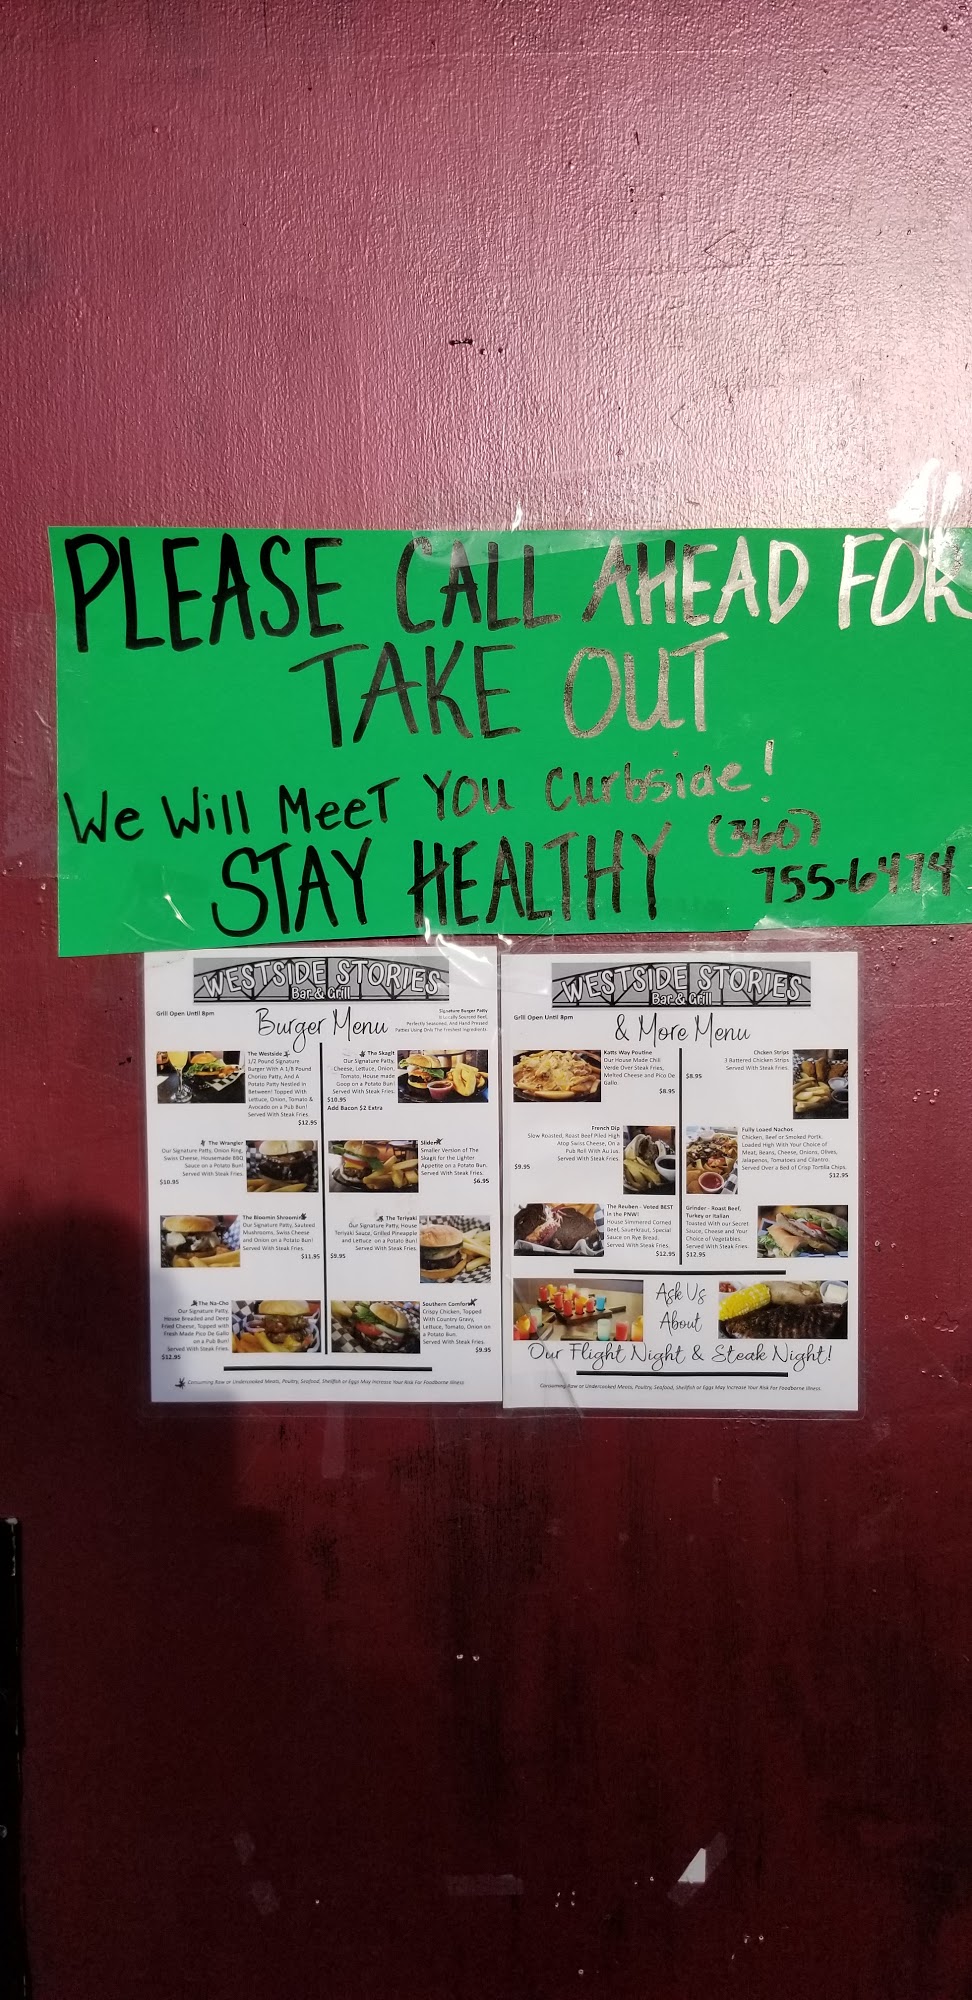 PLEASE CALL AHEAD FOR
TAKE OUT
We Will MeeT You Curbside!
STAY HEALTHY (360)
755-6474
WESTSIDE STORIES
Bar & Grill
Grill Open Until 8pm
Burger Menu
Signature Burger Patty
Is Locally Sourced Beef,
Perfectly Seasoned, And Hand Pressed
Patties Using Only The Freshest Ingredients.
The Westside
1/2 Pound Signature
Burger With A 1/8 Pound
Chorizo Patty, And A
Potato Patty Nestled in
Between! Topped With
Lettuce, Onion, Tomato &
Avocado on a Pub Bun!
Served With Steak Fries.
$12.95
The Skagit
Our Signature Patty,
Cheese, Lettuce, Onion,
Tomato, House made
Goop on a Potato Bun!
Served With Steak Fries.
$10.95
Add Bacon $2 Extra
The Wrangler
Our Signature Patty, Onion Ring,
Swiss Cheese, Housemade BBQ
Sauce on a Potato Bun!
Served With Steak Fries.
$10.95
Slider
Smaller Version of The
Skagit for the Lighter
Appetite on a Potato Bun.
Served With Steak Fries.
$6.95
The Bloomin Shroomin
Our Signature Patty, Sauteed
Mushrooms, Swiss Cheese
and Onion on a Potato Bun!
Served With Steak Fries.
$11.95
The Teriyaki
Our Signature Patty, House
Teriyaki Sauce, Grilled Pineapple
and Lettuce on a Potato Bun!
Served With Steak Fries.
$9.95
The Na-Cho
Our Signature Patty,
House Breaded and Deep
Fried Cheese, Topped with
Fresh Made Pico De Gallo
on a Pub Bun!
Served With Steak Fries.
$12.95
Southern Comfort
Crispy Chicken, Topped
With Country Gravy,
Lettuce, Tomato, Onion on
a Potato Bun.
Served With Steak Fries.
$9.95
Consuming Raw or Undercooked Meats, Poultry, Seafood, Shellfish or Eggs May Increase Your Risk For Foodborne Illness
WESTSIDE STORIES
Bar & Grill
Grill Open Until 8pm
& More Menu
Katts Way Poutine
Our House Made Chili
Verde Over Steak Fries,
Melted Cheese and Pico De
Gallo
$8.95
Chcken Strips
3 Battered Chicken Strips
Served With Steak Fries.
$8.95
French Dip
Slow Roasted, Roast Beef Piled High
Atop Swiss Cheese, On a
Pub Roll With Au Jus.
Served With Steak Fries
$9.95
Fully Loaed Nachos
Chicken, Beef or Smoked Pork.
Loaded High With Your Choice of
Meat, Beans, Cheese, Onions, Olives,
Jalapenos, Tomatoes and Cilantro.
Served Over a Bed of Crisp Tortilla Chips.
$12.95
The Reuben - Voted BEST
in the PNW!
House Simmered Corned
Beef, Sauerkraut, Special
Sauce on Rye Bread.
Served With Steak Fries.
$12.95
Grinder - Roast Beef,
Turkey or Italian
Toasted with our Secret
Sauce, Cheese and Your
Choice of Vegetables.
Served With Steak Fries.
$12.95
Ask Us
About
Our Flight Night & Steak Night!
Consuming Raw or Undercooked Meats, Poultry, Seafood, Shellfish or Eggs May Increase Your Risk For Foodborne Illness.